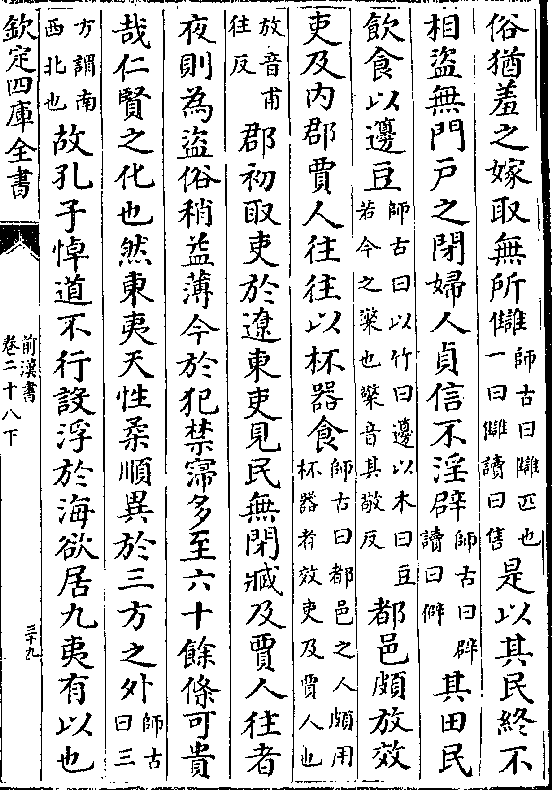 俗猶羞之嫁取無所讎師古曰讎匹也一曰讎讀曰售是以其民終不
相盜無門戶之閉婦人貞信不淫辟師古曰辟讀曰僻其田民
飲食以籩豆師古曰以竹曰籩以木曰豆若今之檠也檠音其敬反都邑頗放效
吏及内郡賈人往往以杯器食師古曰都邑之人頗用杯器者效吏及賈人也
放音甫往反郡初取吏於遼東吏見民無閉臧及賈人往者
夜則為盜俗稍益薄今於犯禁寖多至六十餘條可貴
哉仁賢之化也然東夷天性柔順異於三方之外師古曰三
方謂南西北也故孔子悼道不行設浮於海欲居九夷有以也
欽定四庫全書
前漢書
卷二十八下
三十九